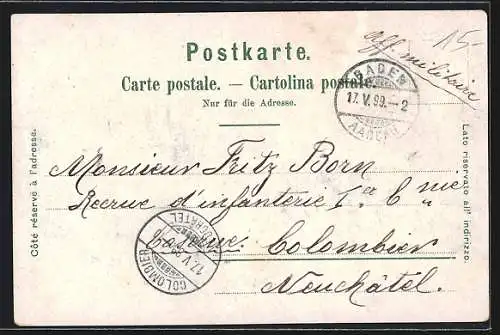 15
Aff. militaire
Postkarte.
Carte postale. — Cartolina postale.
Nur für die Adresse.
BADEN
17. V. 99. - 2
AARGAU
Côté réservé à l'adresse.
Lato riservato all' indirizzo.
Monsieur Fritz Born
Recrue d'infanterie 1re Cnie
Caserne Colombier
Neuchâtel.
COLOMBIER
17. V. 99
NEUCHÂTEL